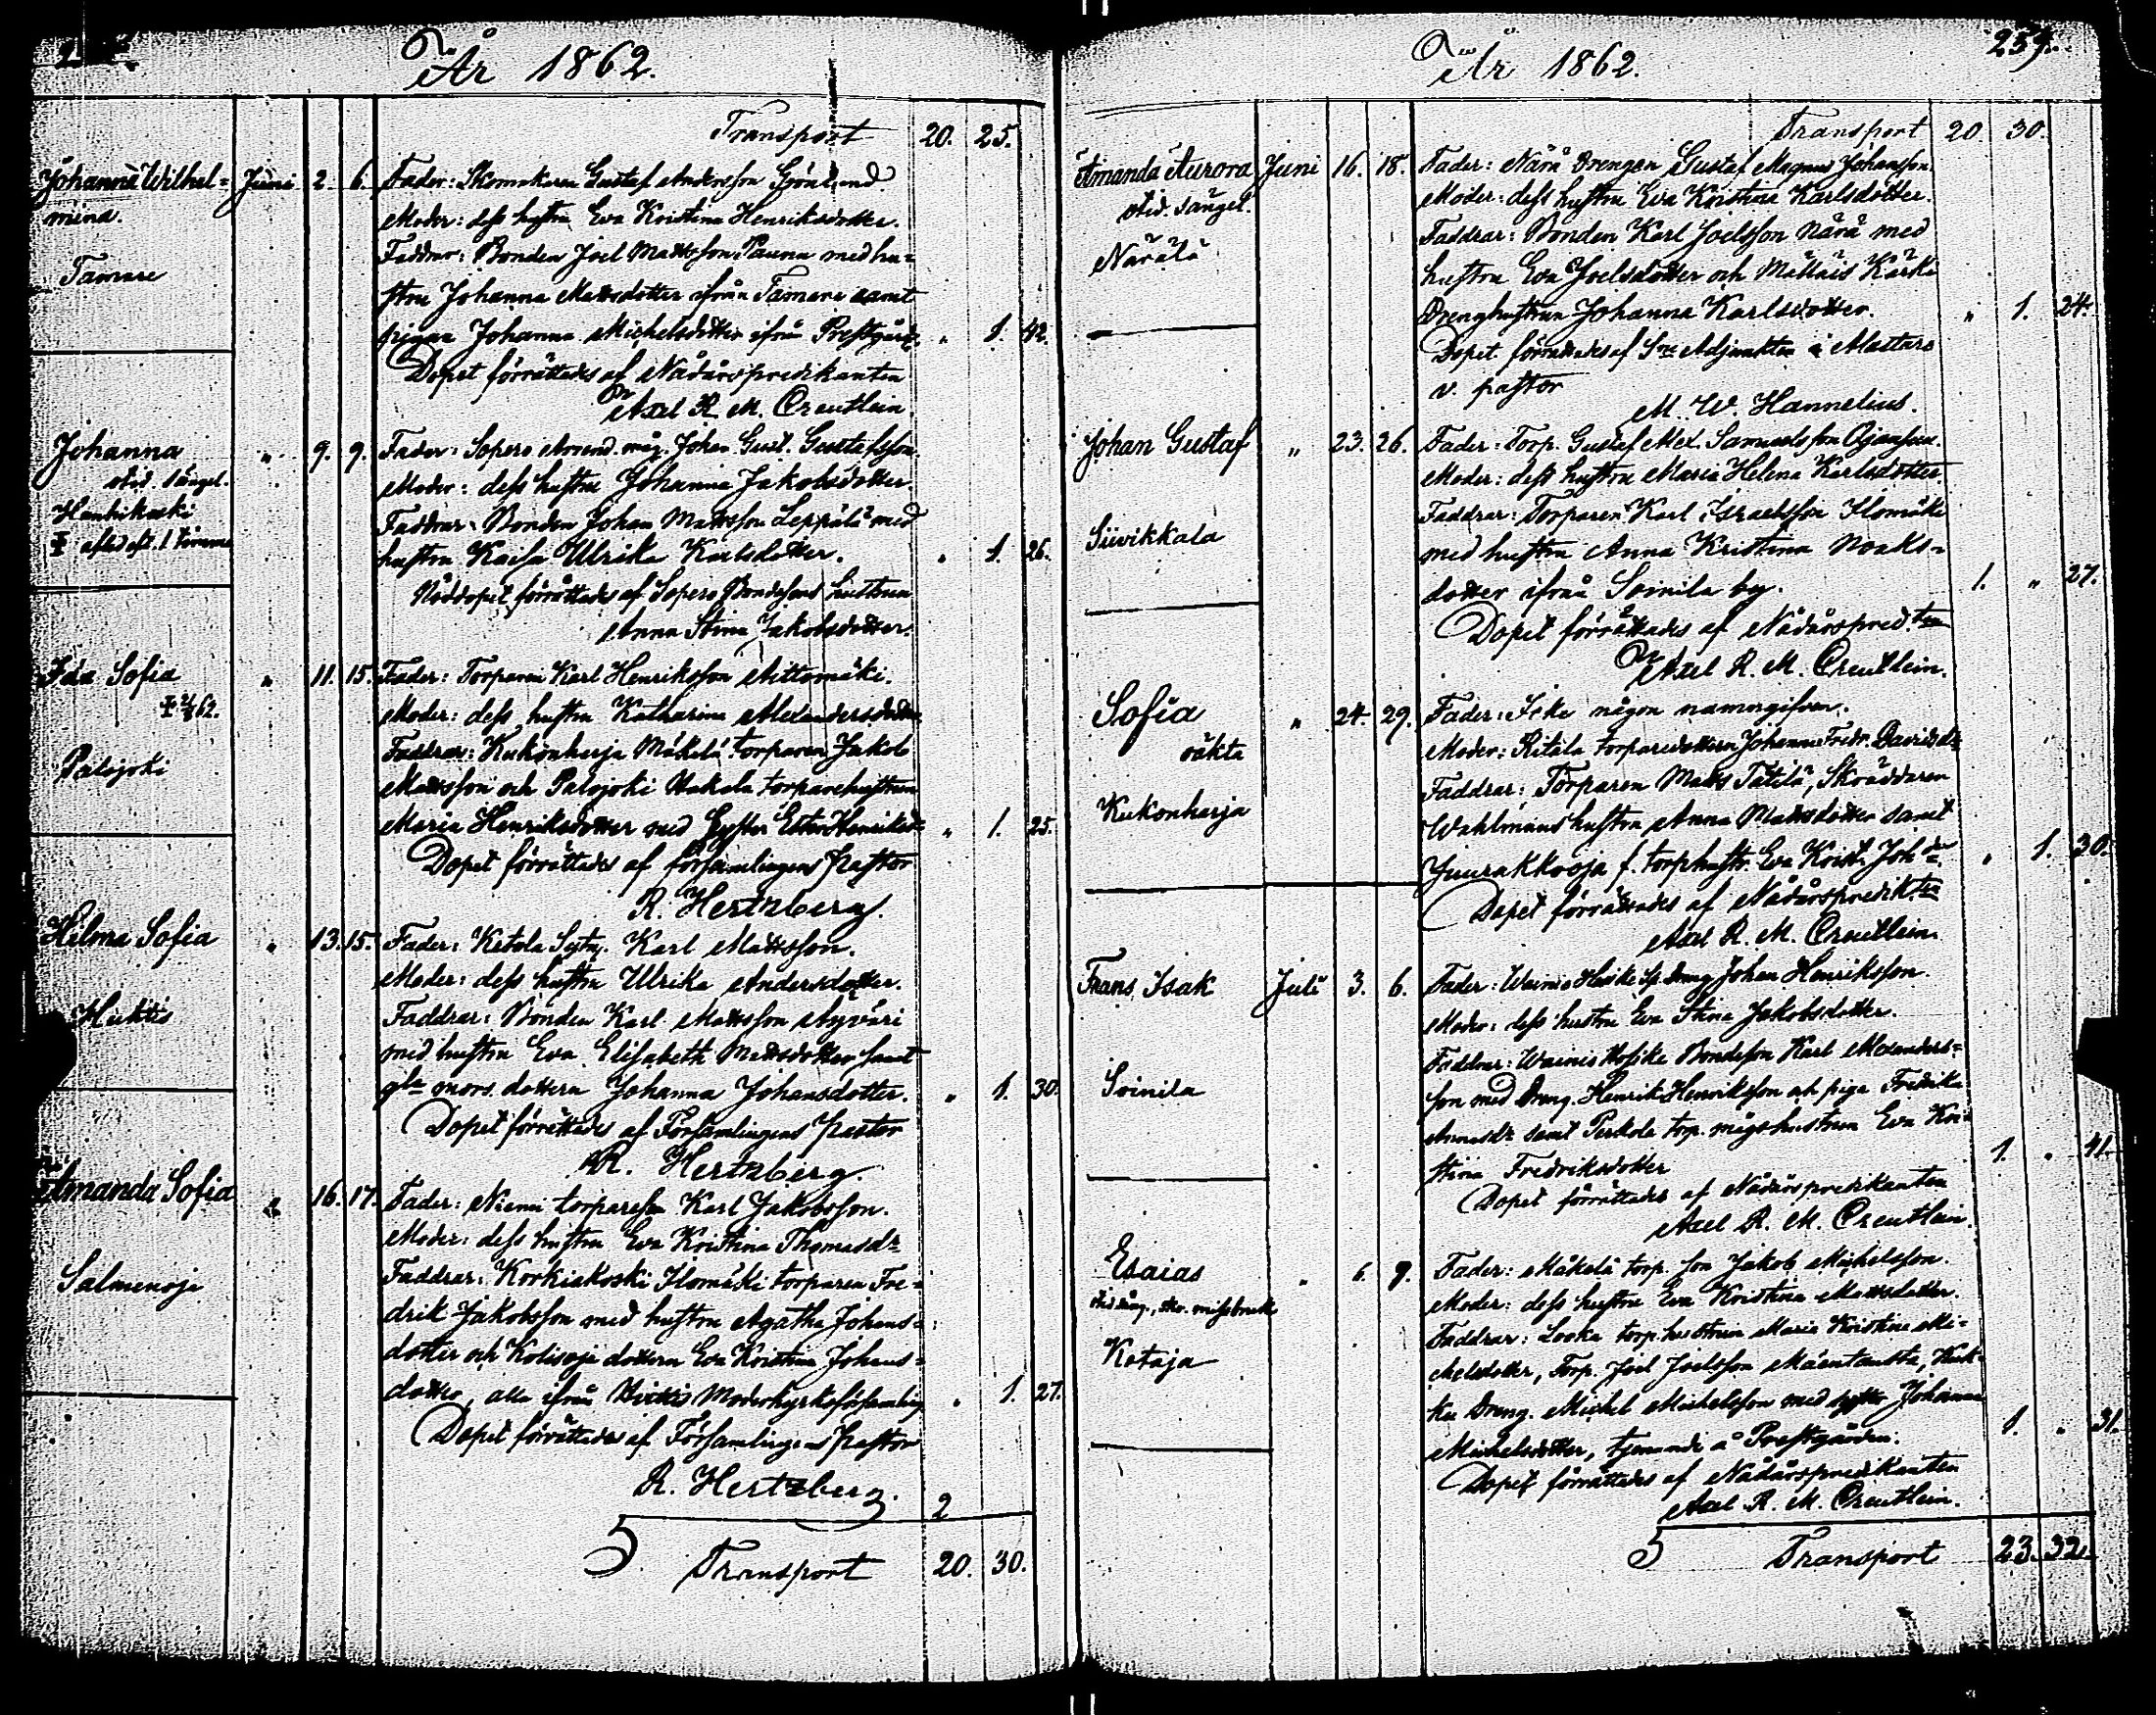 År 1862.
Transport 20. 25.
Johanna Wilhel-
mina.
Tamare
Juni 2. 6.
Fader: Skomakaren Gustaf Andersson Grönlund
Moder: dess hustru Eva Kristina Henriksdotter.
Faddrar: Bonden Joel Mattsson Paunu med hu-
stru Johanna Mattsdotter ifrån Tamare samt
pigan Johanna Michelsdotter ifrån Prestgård. „ 1. 42.
Dopet förrättades af Nådårspredikanten
Axel R. M. Creutlein.
Johanna
Huhtikoski
„ 9. 9.
Fader: Sopero Arrend. måg. Johan Gust. Gustafsson.
Moder: dess hustru Johanna Jakobsdotter.
Faddrar: Bonden Johan Mattsson Leppälä med
hustru Kaisa Ulrika Karlsdotter. „ 1. 26.
Nöddopet förrättades af Sopero Bondesons hustrun
Anna Stina Jakobsdotter.
Ida Sofia
Palojoki
„ 11. 15.
Fader: Torparen Karl Henriksson Aittomäki.
Moder: dess hustru Katharina Alexandersdotter
Faddrar: Kukonharja Mäkelä torparen Jakob
Mattsson och Palojoki Hakala torparehustrun
Maria Henriksdotter med Syster Ester Henriksd= „ 1. 25.
Dopet förrättades af församlingens pastor
R. Hertzberg.
Hilma Sofia
Huktis
„ 13. 15.
Fader: Ketola Sytn. Karl Mattsson.
Moder: dess hustru Ulrika Andersdotter.
Faddrar: Bonden Karl Mattsson Äyväri
med hustru Eva Elisabeth Mattsdotter samt
gla mors. dottern Johanna Johansdotter. „ 1. 30.
Dopet förrättades af Församlingens Pastor
R. Hertzberg.
Amanda Sofia
Salmenoja
„ 16. 17.
Fader: Niemi torpareson Karl Jakobsson.
Moder: dess hustru Eva Kristina Thomasdr
Faddrar: Korkiakoski Ilomäki torparen Fre-
drik Jakobsson med hustru Agatha Johans-
dotter och Kolisoja dottern Eva Kristina Johans-
dotter, alla ifrån Moderkyrkoförsamling „ 1. 27.
Dopet förrättades af Församlingens Pastor
R. Hertzberg.
2
5 Transport 20. 30.
År 1862. 259.
Transport 20 30.
Amanda Aurora
Närälä
Juni 16. 18.
Fader: Närä Drengen Gustaf Magnus Johansson.
Moder: dess hustru Eva Kristina Karlsdotter.
Faddrar: Bonden Karl Joelsson Närä med
hustru Eva Joelsdotter och Mälläis Kärki
Drenghustrun Johanna Karlsdotter. „ 1. 24.
Dopet förrättades af Adjunkten i Mattars
v. pastor
M. W. Hannelius.
Johan Gustaf
Siivikkala
„ 23. 26.
Fader: Torp. Gustaf Alex. Samuelsson Ojansuu.
Moder: dess hustru Maria Helena Karlsdotter.
Faddrar: Torparen Karl Israelsson Ilomäki
med hustru Anna Kristina Noaks-
dotter ifrån Soinila by. 1. „ 27.
Dopet förrättades af Nådårspred.ten
Axel R. M. Creutlein.
Sofia
oäkta
Kukonharja
„ 24. 29.
Fader: Icke någon namngifven.
Moder: Ritala torparedottern Johanna Fredr. Davidsdr
Faddrar: Torparen Matts Tätilä, Skräddaren
Wahlmans hustru Anna Mattsdotter samt
Juurakkooja f. torphustr. Eva Krist. Johdr „ 1. 30.
Dopet förrättades af Nådårspredikten
Axel R. M. Creutlein.
Frans Isak
Soinila
Juli 3. 6.
Fader: Wainio Dreng Johan Henriksson.
Moder: dess hustru Eva Stina Jakobsdotter.
Faddrar: Wainio Bondeson Karl Alexanders-
son med Dreng. Henrik Henriksson och piga Fredrika
samt Perkola torp. mågshustrun Eva Kri-
stina Fredriksdotter 1. „ 41.
Dopet förrättades af Nådårspredikanten
Axel R. M. Creutlein.
Esaias
Kotaja
„ 6. 9.
Fader: Mäkelä torp. son Jakob Michelsson.
Moder: dess hustru Eva Kristina Mattsdotter.
Faddrar: Looka torp. hustrun Maria Kristina Mi-
chelsdotter, Torp. Joel Joelsson Mäentausta,
Dreng. Michel Michelsson med syster Johanna
Michelsdotter, tjenande å Prestgården. 1. „ 31.
Dopet förrättades af Nådårspredikanten
Axel R. M. Creutlein.
5 Transport 23. 32.